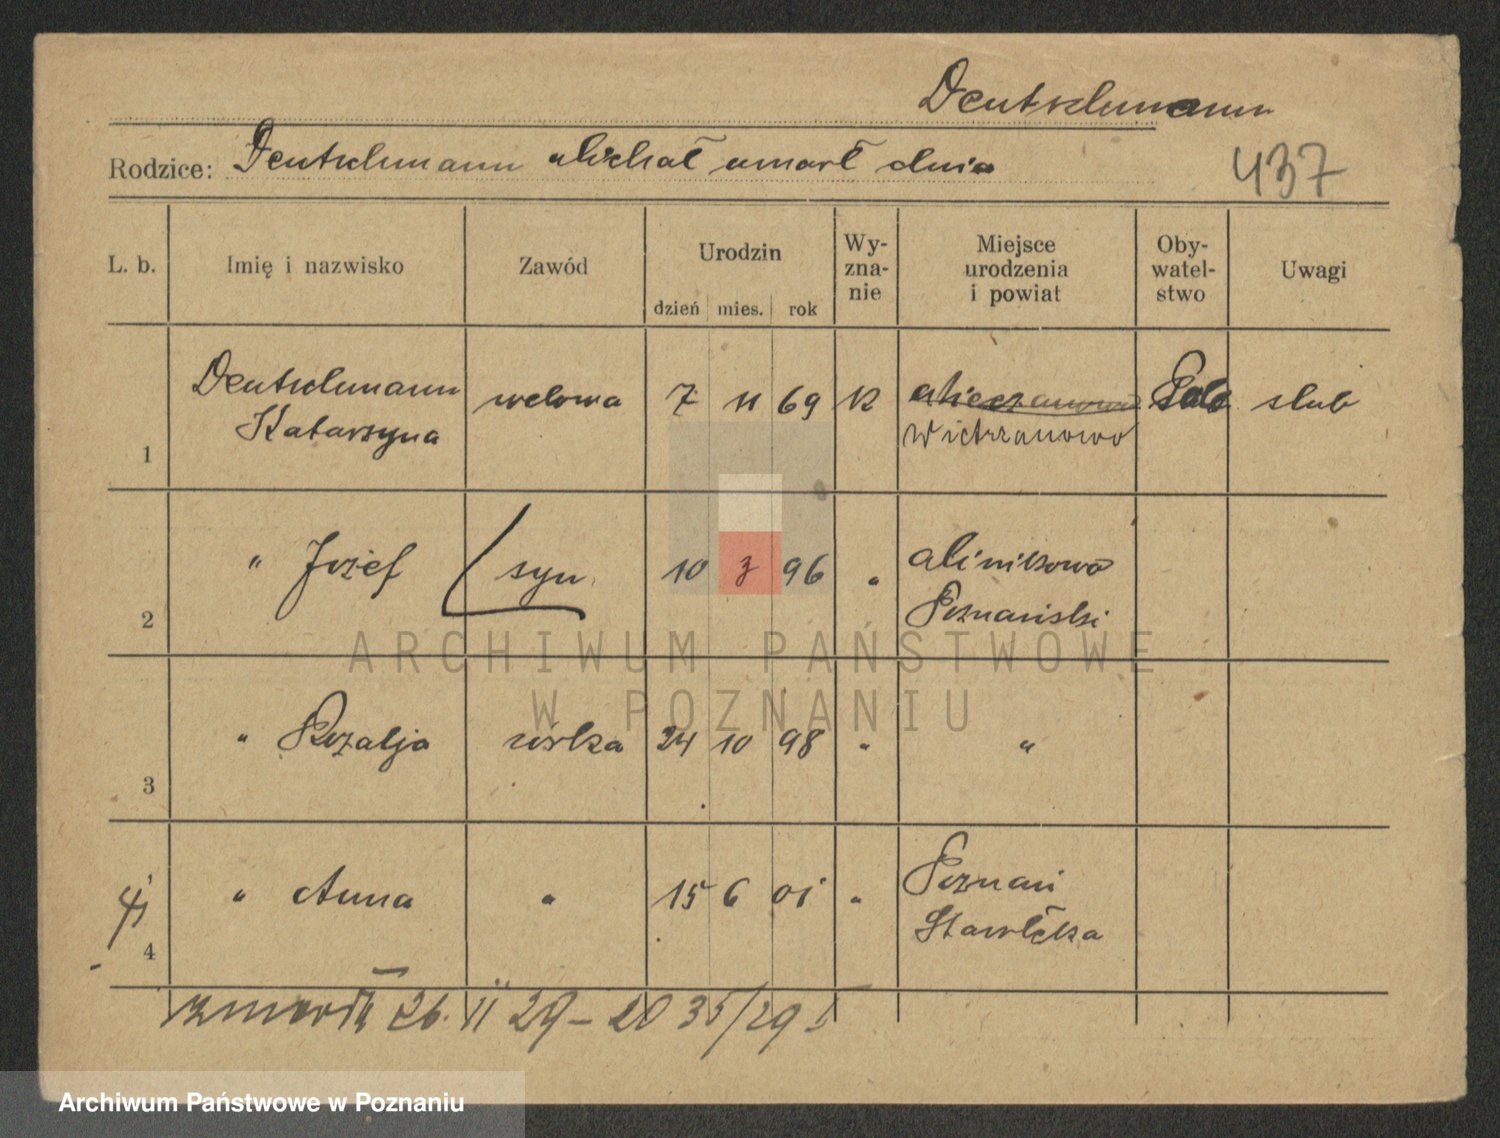 Deutschmann
Rodzice: Deutschmann Michał umarł dnia
437
L. b. Imię i nazwisko Zawód Urodzin dzień mies. rok Wy-zna-nie Miejsce urodzenia i powiat Oby-watel-stwo Uwagi
Deutschmann wdowa 7 11 69 K Pol. slub
1 Katarzyna Wietrzanowo
" Józef syn 10 3 96 " Minikowo
2 Poznański
" Rozalja córka 24 10 98 " "
3
" Anna " 15 6 01 " Poznań
4 Starołęka
26. II 29 - 20 35/29
ARCHIWUM PAŃSTWOWE
W POZNANIU
Archiwum Państwowe w Poznaniu